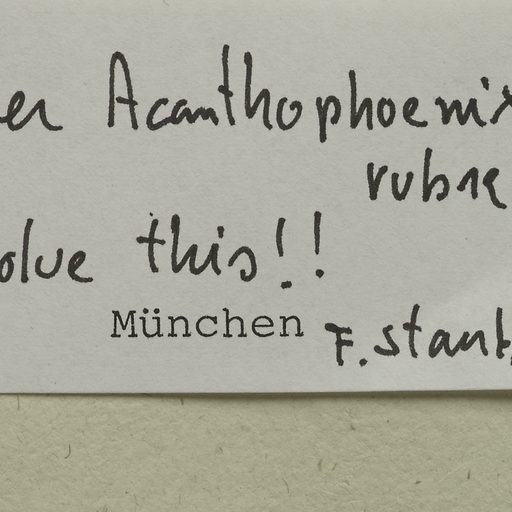 er Acanthophoenix
rubra
olve this!!
München F. Stauf